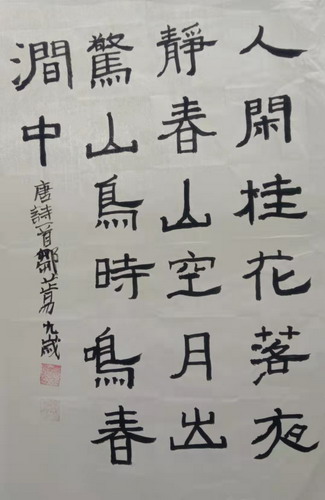 人閑桂花落夜
靜春山空月出
驚山鳥時鳴春
澗中
唐詩一首鄒苡易九歲